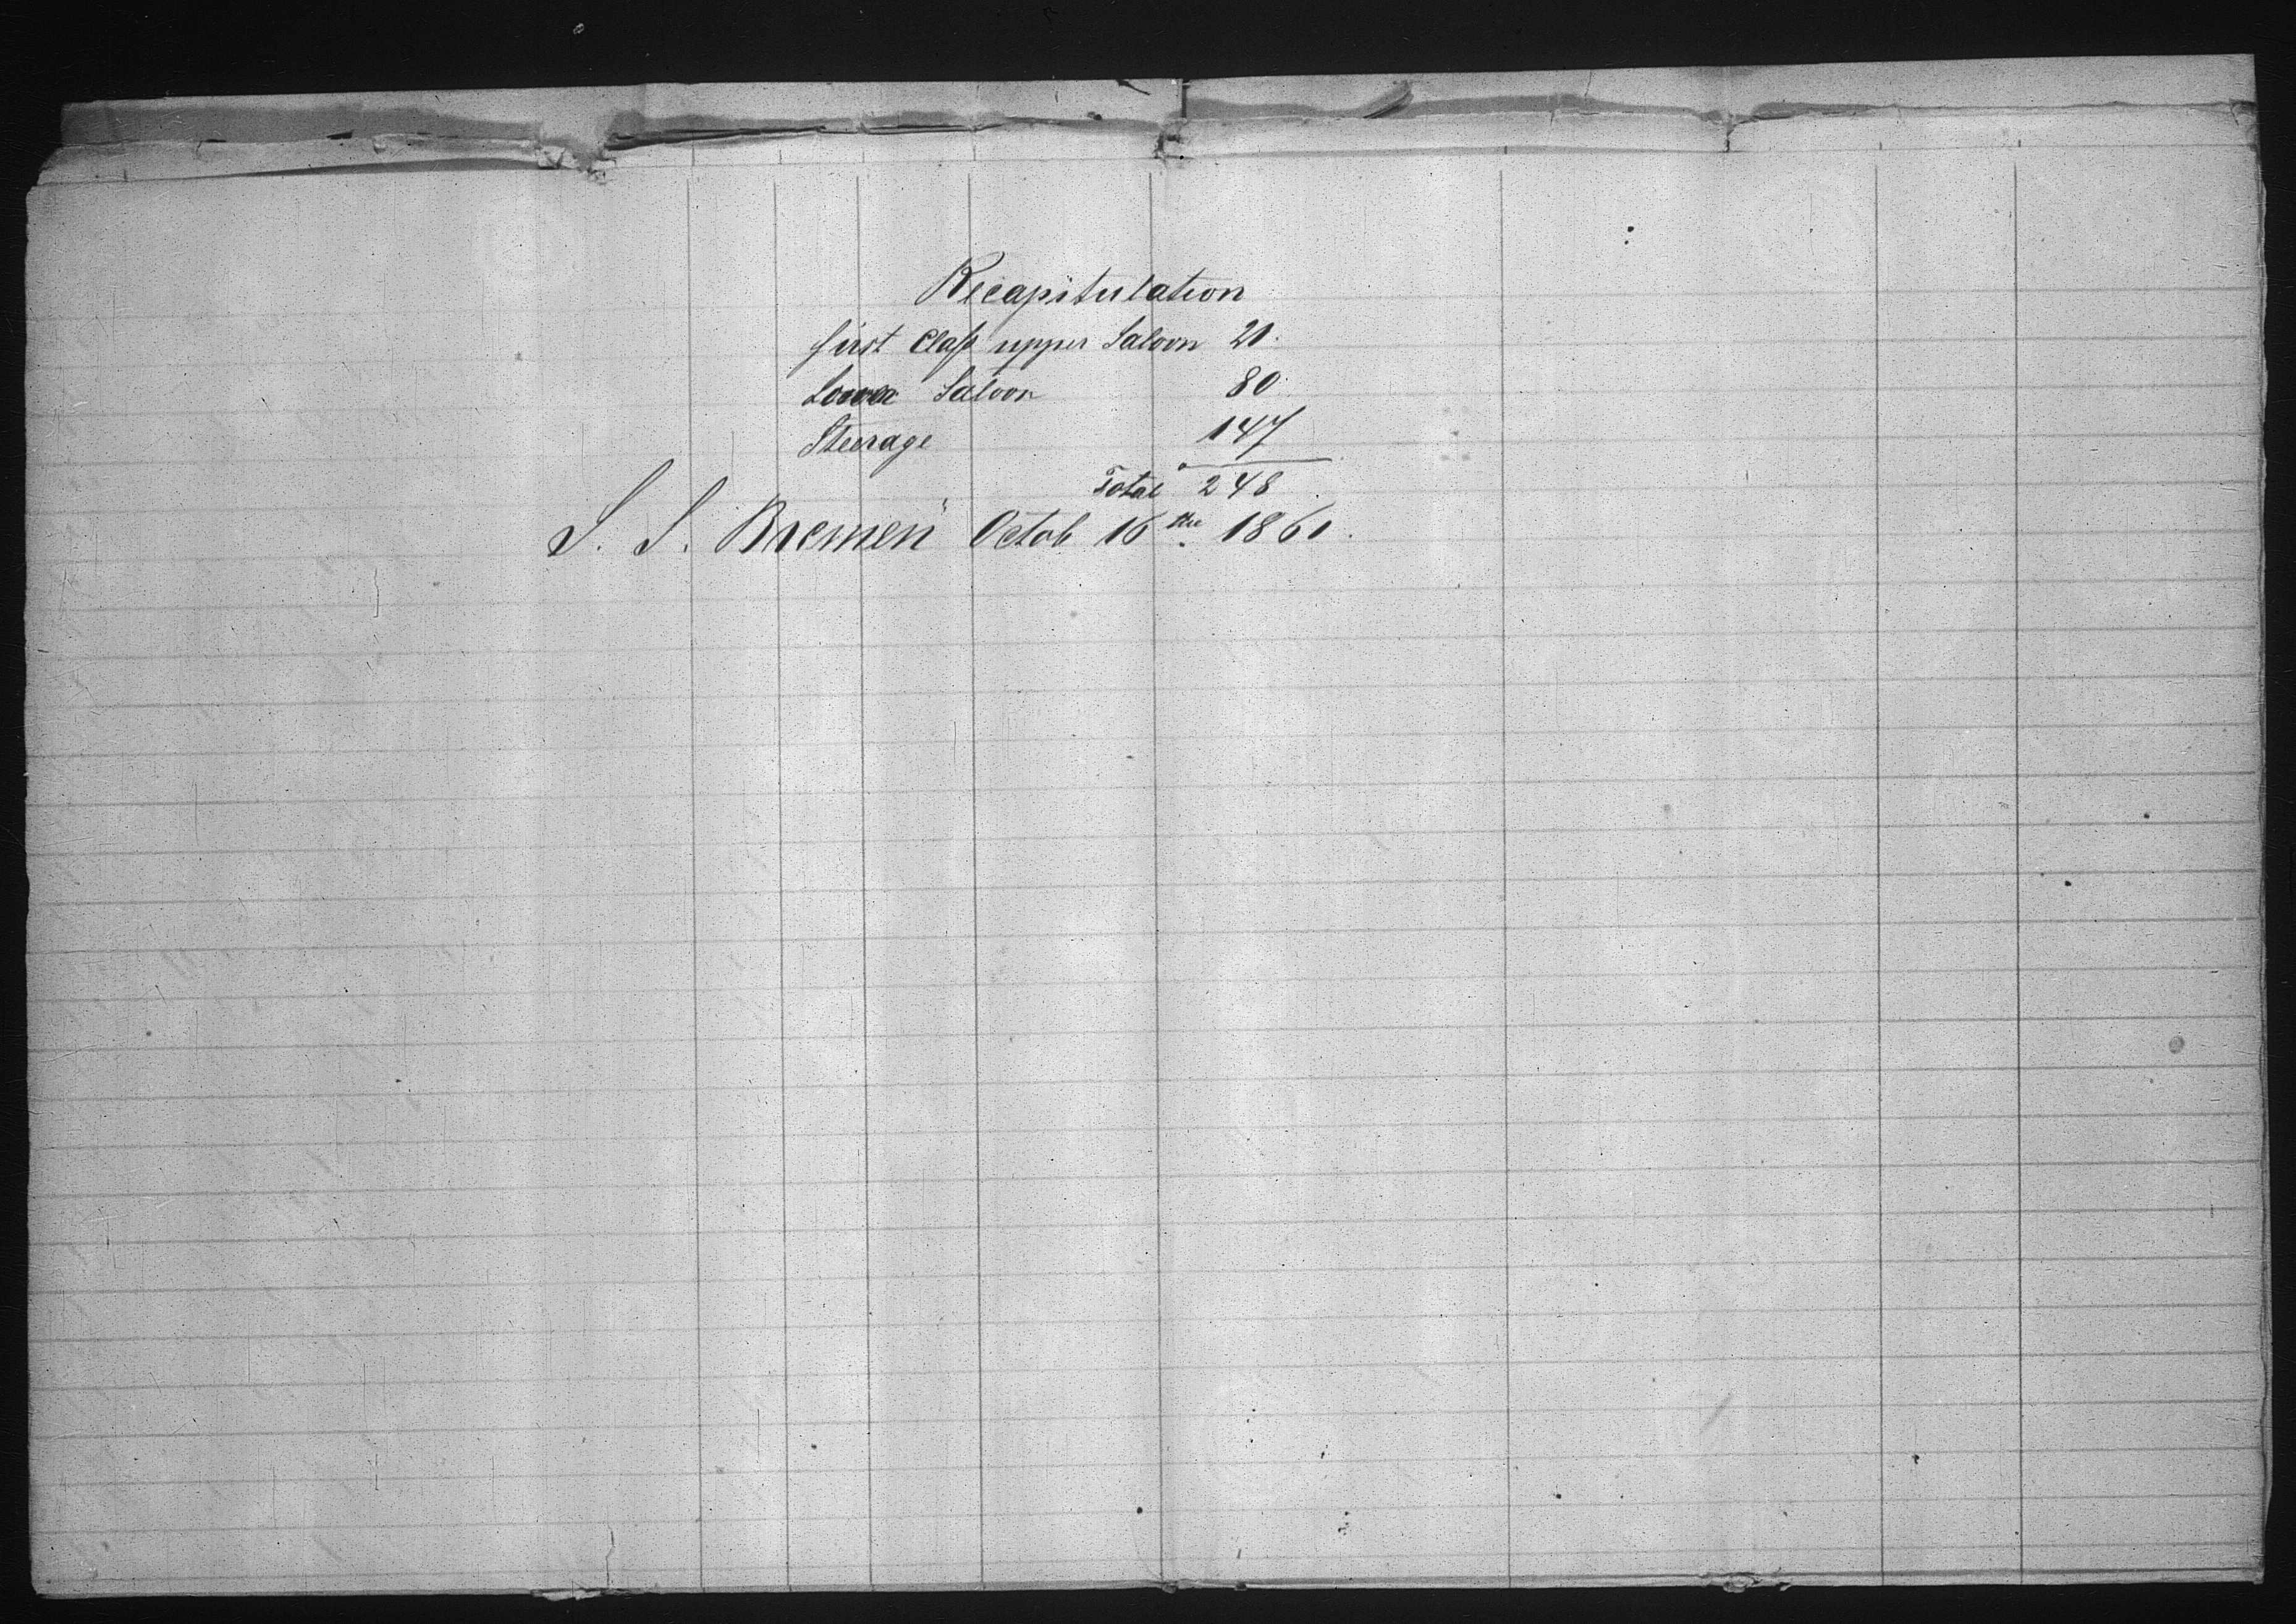 Recapitulation
first Class upper Saloon 21.
Lower Saloon 80.
Steerage 147
Total 248
S. S. Bremen" Octob 16the 1861.